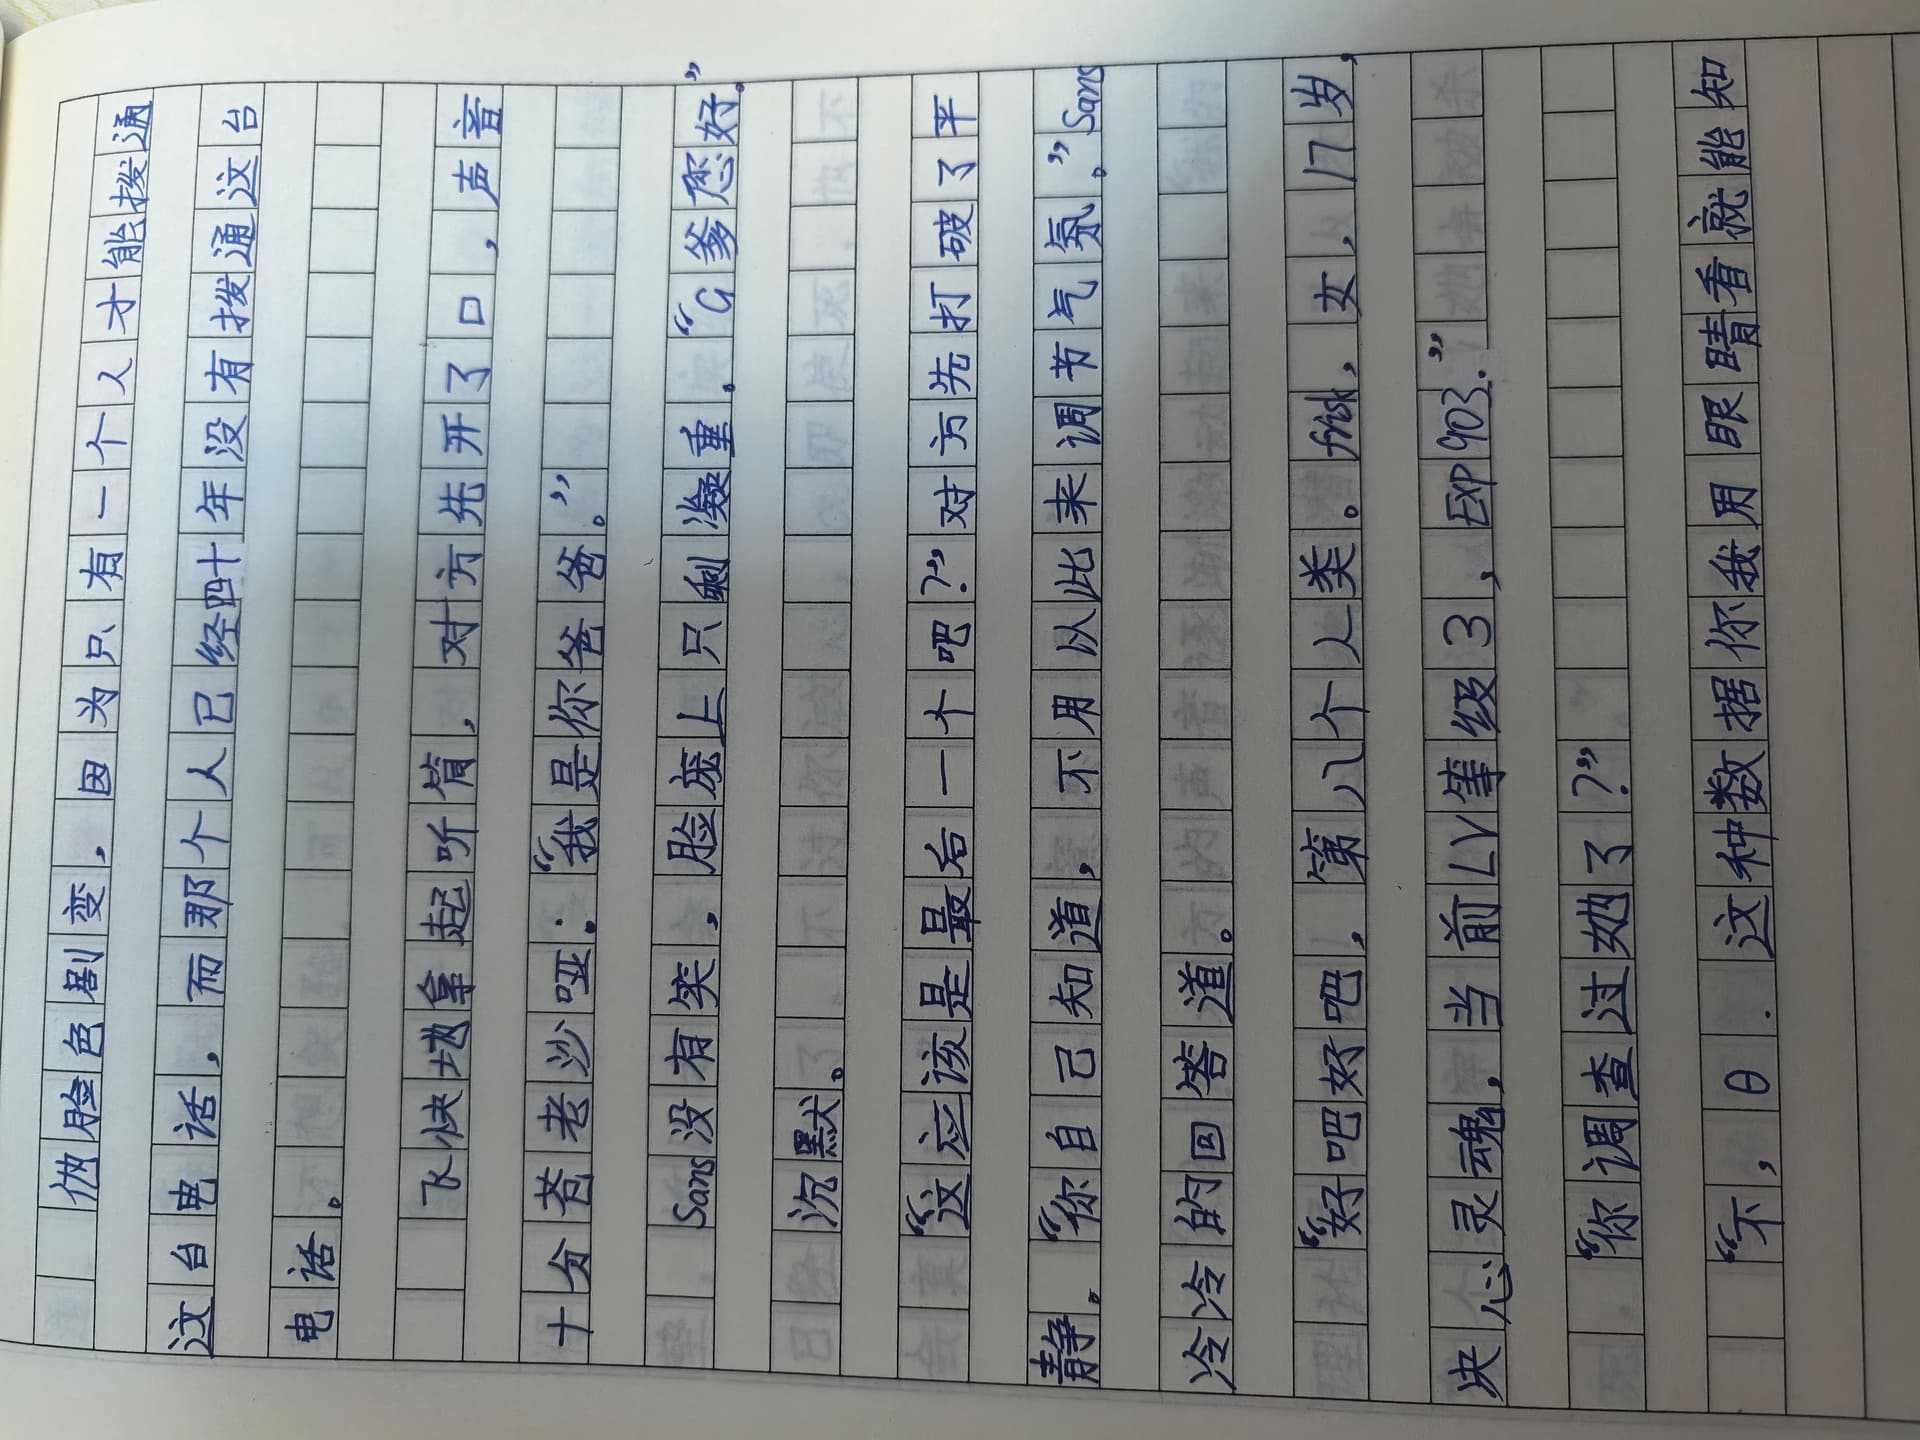 他脸色剧变，因为只有一个人才能拨通
这台电话，而那个人已经四十年没有拨通这台
电话。
飞快地拿起听筒，对方先开了口，声音
十分苍老沙哑：“我是你爸爸。”
Sans没有笑，脸庞上只剩凝重。“G爹您好。”
沉默。
“这应该是最后一个吧？”对方先打破了平
静。“你自己知道，不用以此来调节气氛。”Sans
冷冷的回答道。
“好吧好吧，第八个人类。frisk，女，17岁，
决心灵魂，当前LV等级3，EXP903.”
“你调查过她了？”
“不，θ.这种数据你我用眼睛看就能知